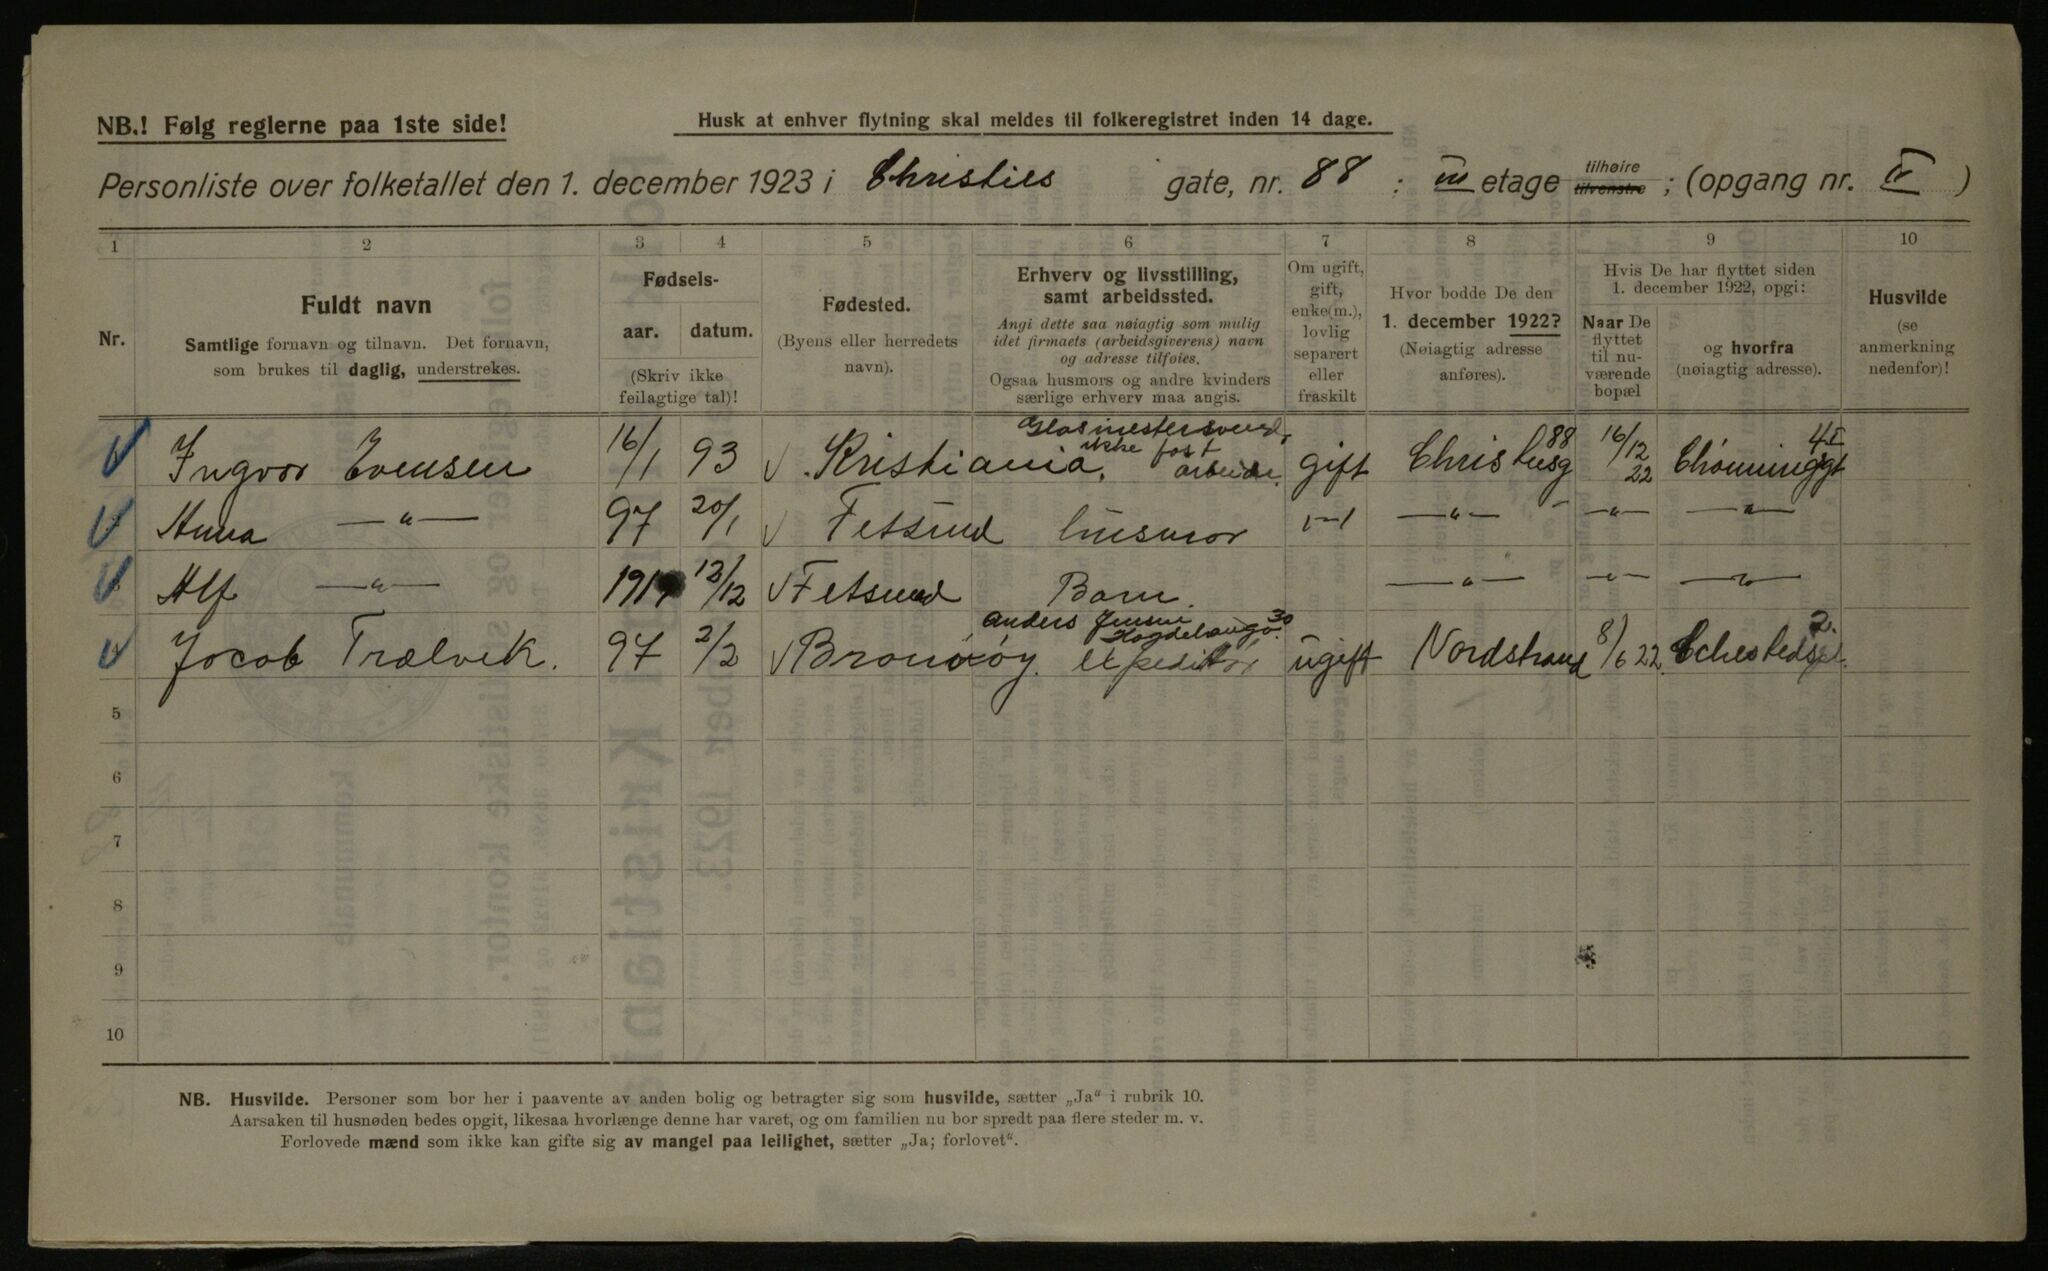 NB.! Følg reglerne paa 1ste side!
Husk at enhver flytning skal meldes til folkeregistret inden 14 dage.
Personliste over folketallet den 1. december 1923 i Christies gate, nr. 88 ; III etage tilhøire tilvenstre ; (opgang nr. II )
1 2 3 4 5 6 7 8 9 10
Nr.
Fuldt navn
Samtlige fornavn og tilnavn. Det fornavn,
som brukes til daglig, understrekes.
Fødsels-
aar. datum.
(Skriv ikke
feilagtige tal)!
Fødested.
(Byens eller herredets
navn).
Erhverv og livsstilling,
samt arbeidssted.
Angi dette saa nøiagtig som mulig
idet firmaets (arbeidsgiverens) navn
og adresse tilføies.
Ogsaa husmors og andre kvinders
særlige erhverv maa angis.
Om ugift,
gift,
enke(m.),
lovlig
separert
eller
fraskilt
Hvor bodde De den
1. december 1922?
(Nøiagtig adresse
anføres).
Hvis De har flyttet siden
1. december 1922, opgi:
Naar De
flyttet
til nu-
værende
bopæl
og hvorfra
(nøiagtig adresse).
Husvilde
(se
anmerkning
nedenfor)!
Glasmestersvend,
ikke fast
Ingvar Evensen 16/1 93 Kristiania. arbeide. gift Christiesg 88 16/12 22 Chönninggt 4 I
Anna —"— 97 20/1 Fetsund husmor —"— —"— —"— —"—
Alf —"— 1917 13/12 Fetsund Barn. —"— —"— —"—
Anders Jensen
30
Jacob Trælvik. 97 2/2 Brønnøy expeditør ugift Nordstrand 8/6 22. Schestedspl. 2.
5
6
7
8
9
10
NB. Husvilde. Personer som bor her i paavente av anden bolig og betragter sig som husvilde, sætter „Ja“ i rubrik 10.
Aarsaken til husnøden bedes opgit, likesaa hvorlænge denne har varet, og om familien nu bor spredt paa flere steder m. v.
Forlovede mænd som ikke kan gifte sig av mangel paa leilighet, sætter „Ja; forlovet“.